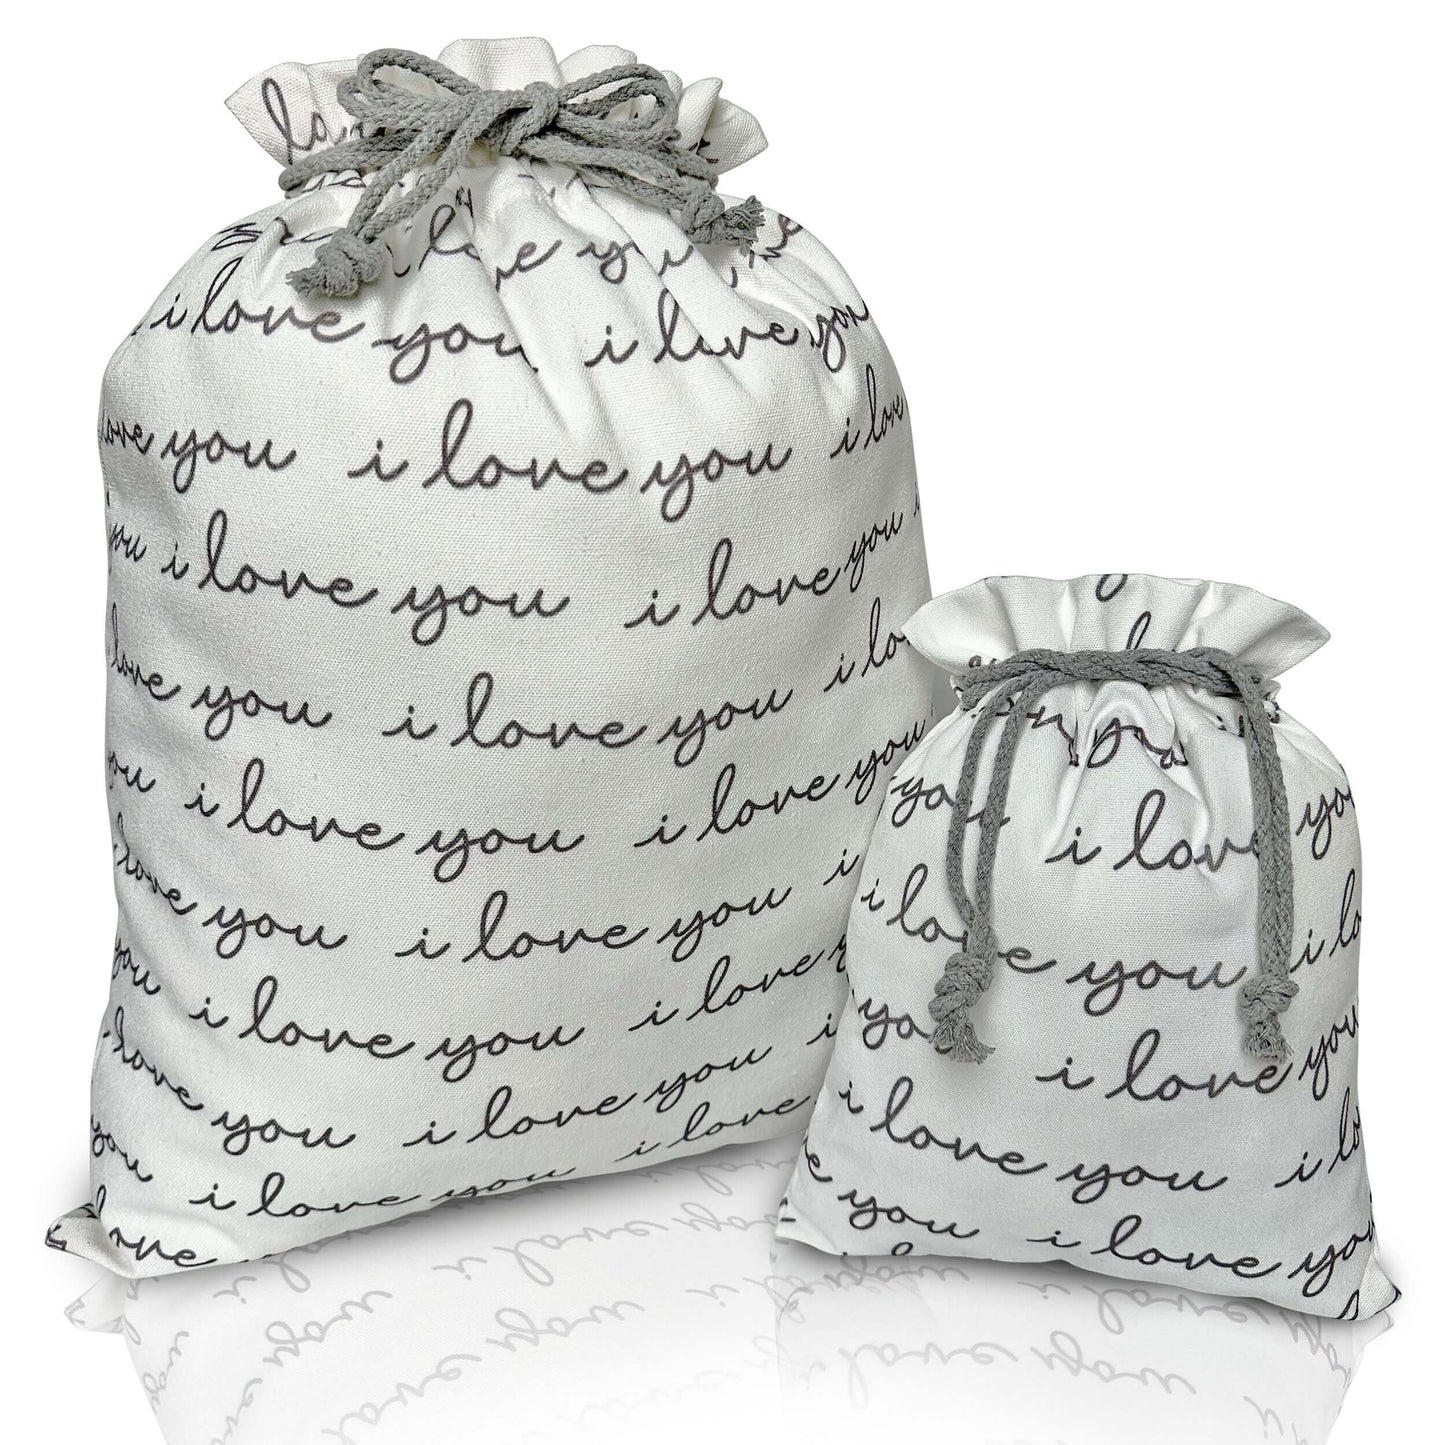 love you
i love you i love you
love you i love you i love
you i love you i love you i
love you i love you i lo
you i love you i love you
love you i love you i
you i love you i love y
love you i love you i
you i love you i love
love
you
you i love you
i love you i lo
yo i love you
i love you i lo
e you i love you